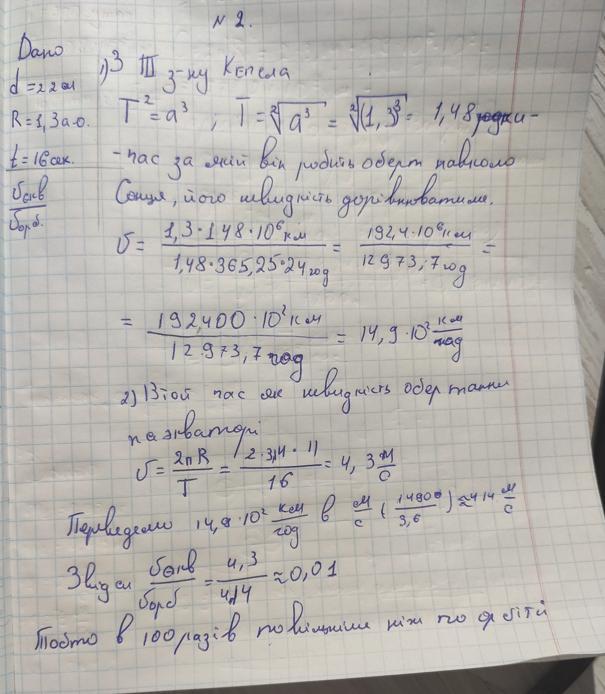 № 2.
Дано
d = 22 м
R = 1,3 а.о.
t = 16 сек.
Vекв / Vорб.
1) З III з-ну Кеплера
T² = a³ ; T = ²√a³ = ²√(1,3)³ = 1,48 роки -
- час за який він робить оберт навколо
Сонця, його швидкість дорівнюватиме.
V = 1,3 · 148 · 10⁶ км / 1,48 · 365,25 · 24 год = 192,4 · 10⁶ км / 12973,7 год =
= 192,400 · 10² км / 12973,7 год = 14,9 · 10² км/год
2) В той час як швидкість обертання
на екваторі
V = 2πR / T = 2 · 3,14 · 11 / 16 = 4,3 м/с
Переведемо 14,9 · 10² км/год в м/с (14900 / 3,6) ≈ 414 м/с
Звідси Vекв / Vорб = 4,3 / 414 ≈ 0,01
Тобто в 100 разів повільніше ніж по орбіті